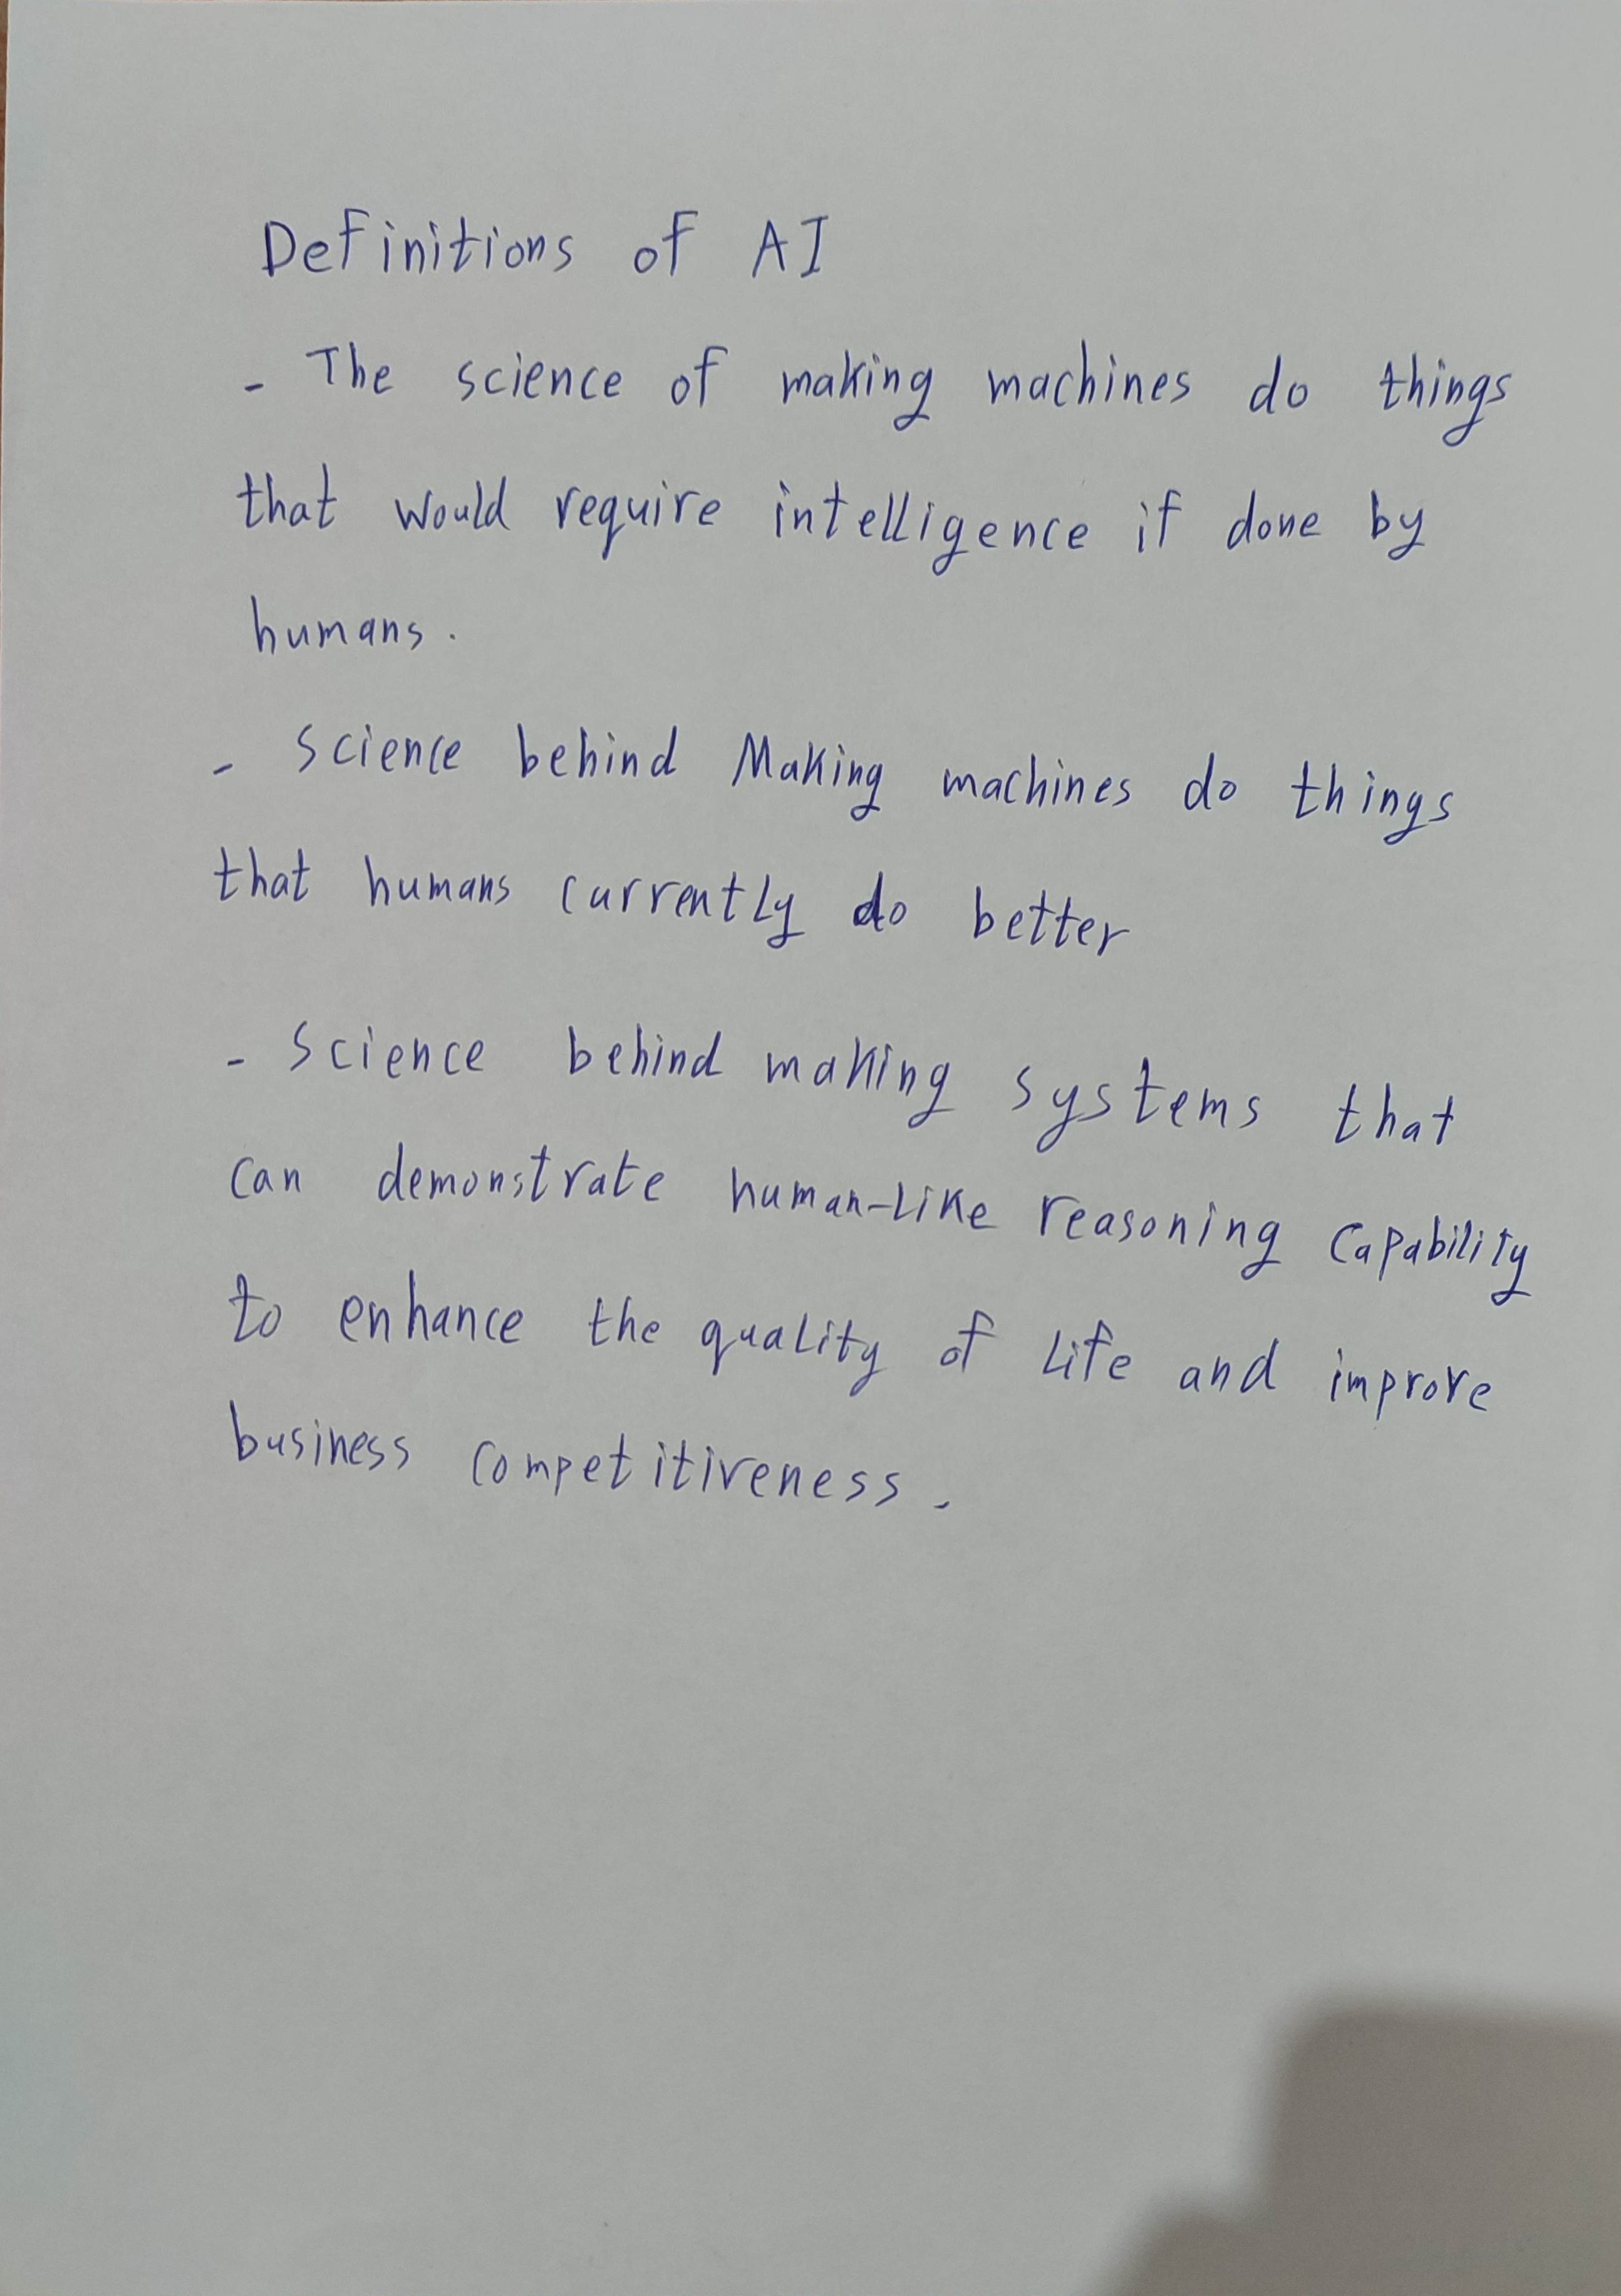 Definitions of AI
- The science of making machines do things
that would require intelligence if done by
humans.
- Science behind Making machines do things
that humans currently do better
- Science behind making systems that
can demonstrate human-like reasoning capability
to enhance the quality of life and improve
business competitiveness.